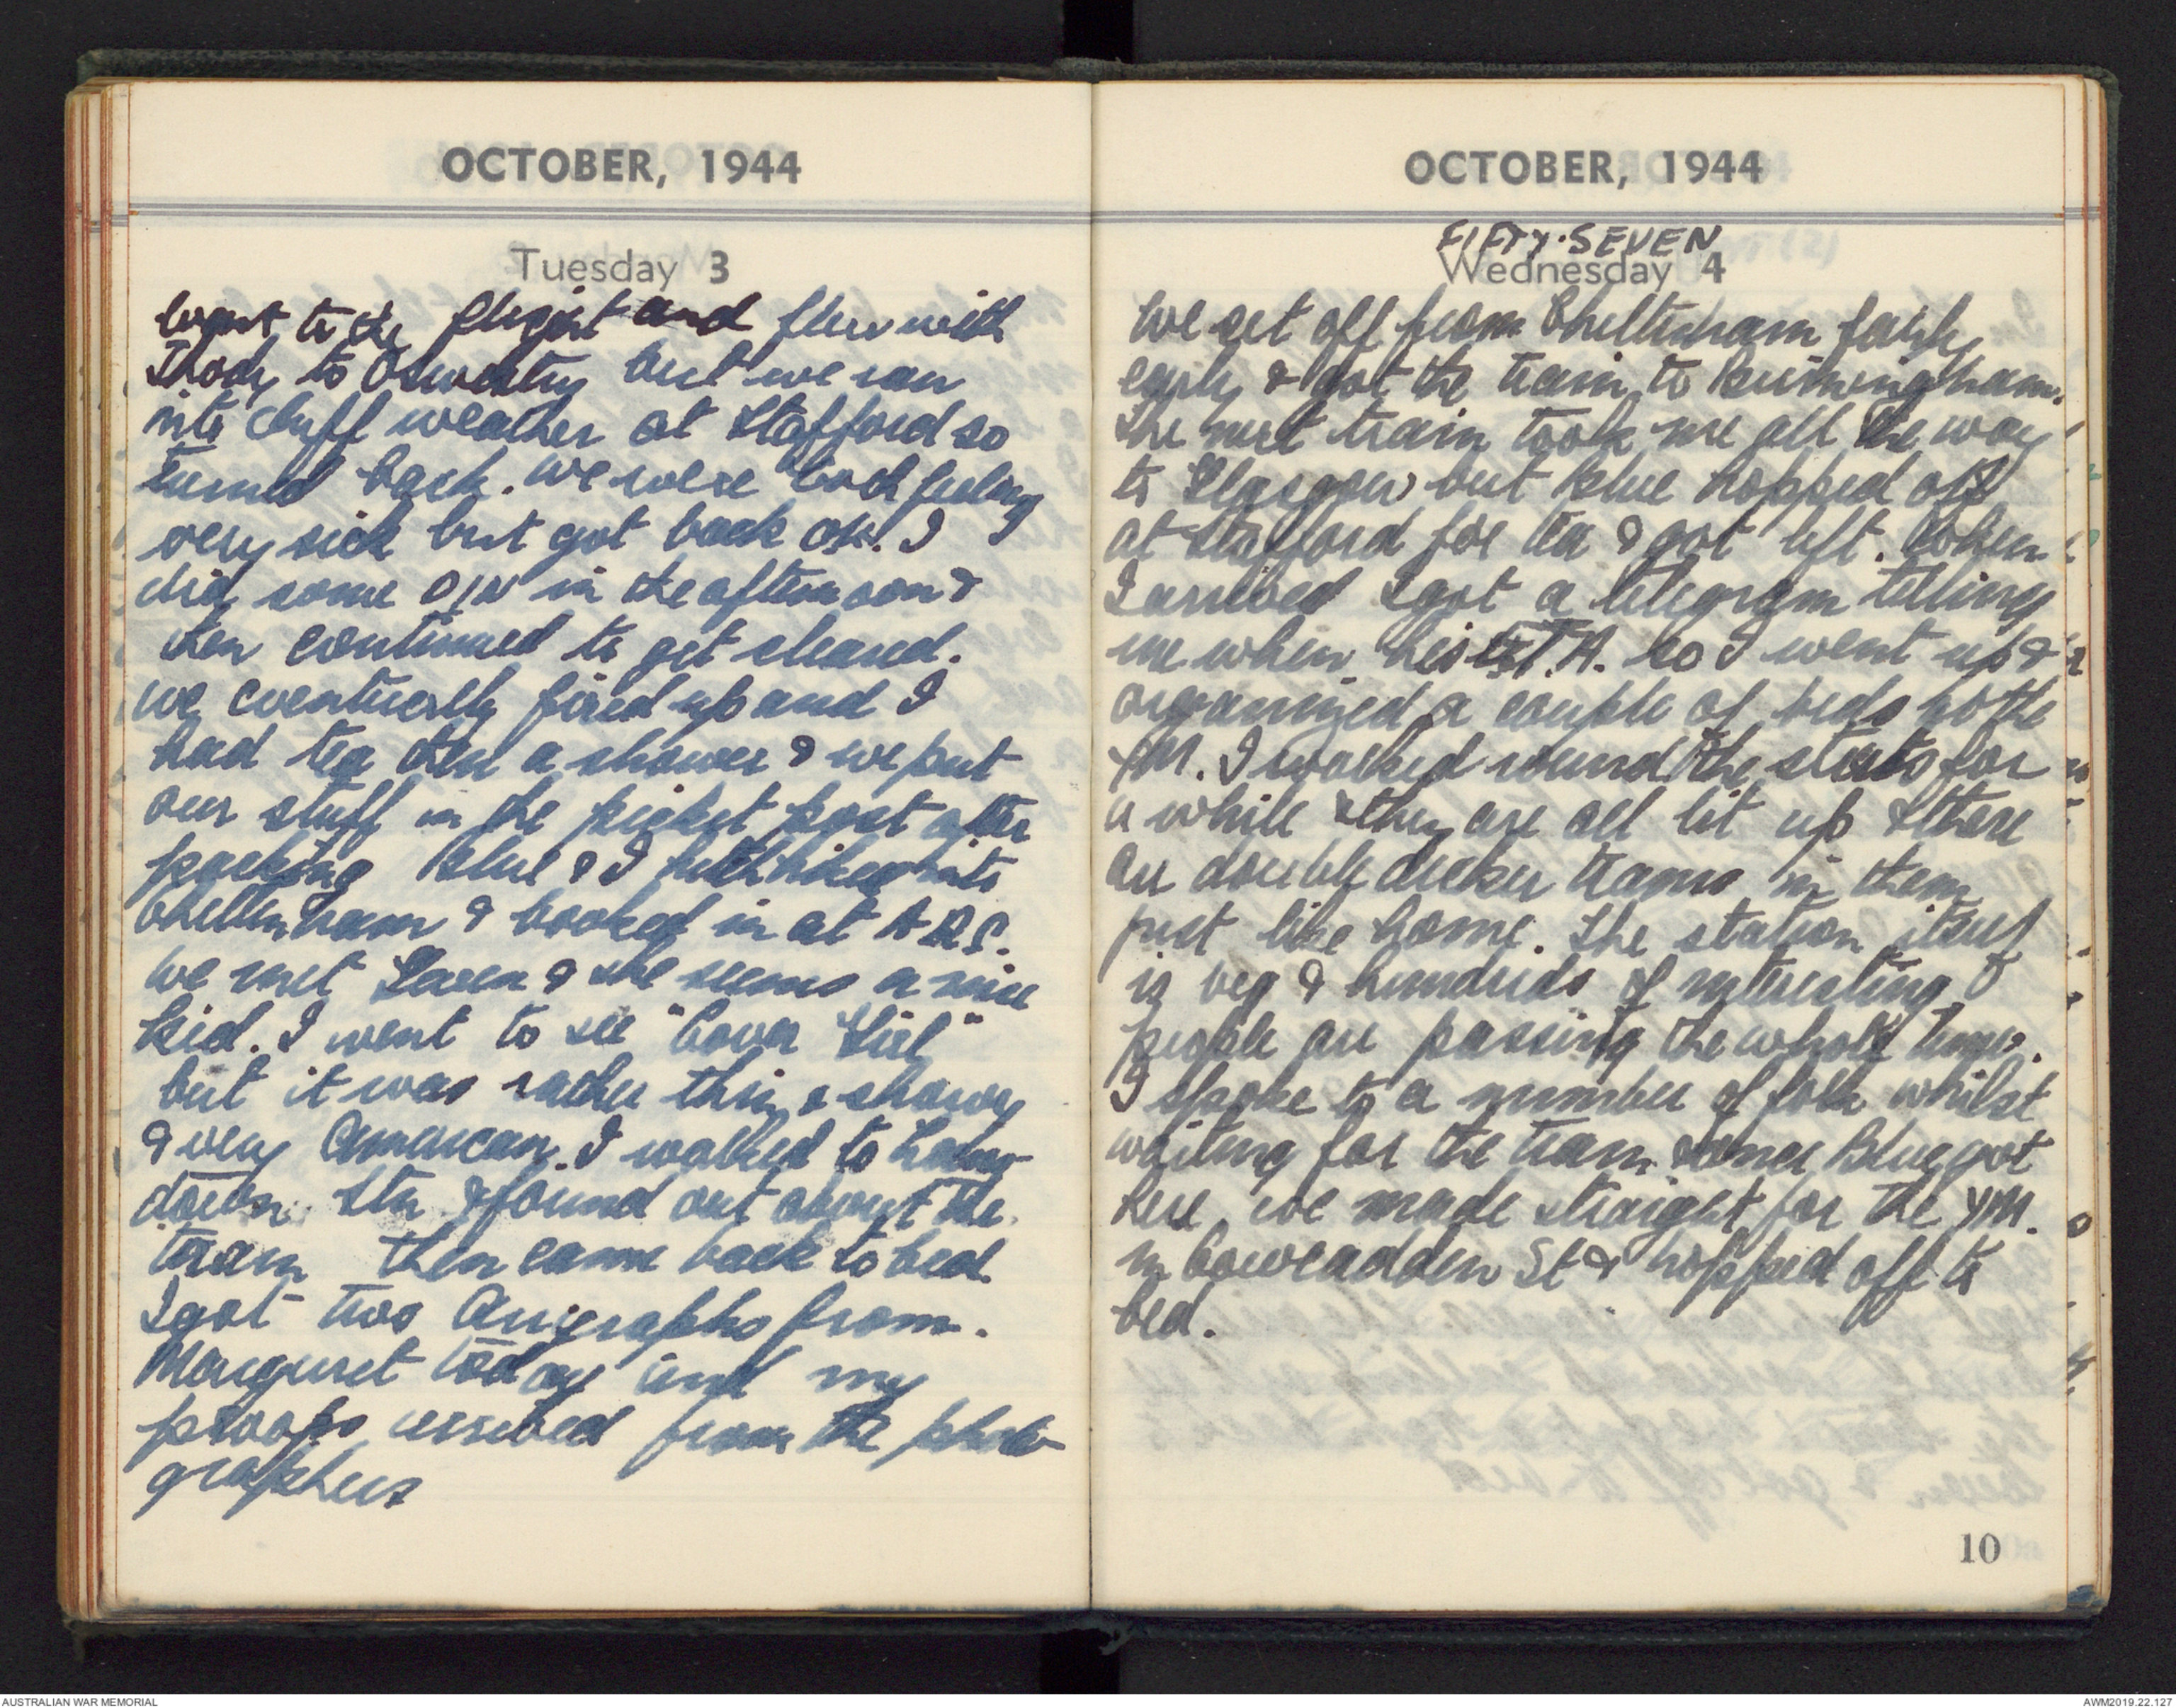 OCTOBER, 1944
Tuesday 3
Went to the flight and flew with
Thody to Oswestry but we ran
into duff weather at Stafford so
turned back. We were both feeling
very sick but got back ok. I
did some D/R in the afternoon &
then continued to get cleared.
We eventually fixed up and I
had tea then a shower & we put
our stuff in the picket post after
packing Blue & I hitchhiked into
Cheltenham & booked in at A.R.C.
We met & she seems a nice
kid. I went to see "Cover Girl"
but it was rather thin & showy
& very American. I walked to Lans-
down Stn & found out about the
train then came back to bed.
I got two Airgraphs from.
Margaret today and my
proofs arrived from the photo-
graphers
OCTOBER, 1944
FIFTY-SEVEN
Wednesday 4
We set off from Cheltenham fairly
early & got the train to Birmingham.
The next train took me all the way
to Glasgow but Blue hopped off
at Stafford for tea & got left. When
I arrived I got a telegram telling
me when his E.T.A. so I went up &
organized a couple of beds at the
YM. I walked round the streets for
a while & they are all lit up & there
are double decker trams in them
just like home. The station itself
is big & hundreds of interesting
people are passing the whole time.
I spoke to a number of folk whilst
waiting for the train & once Blue got
here we made straight for the YM.
in St & hopped off to
bed.
10
AUSTRALIAN WAR MEMORIAL
AWM2019.22.127